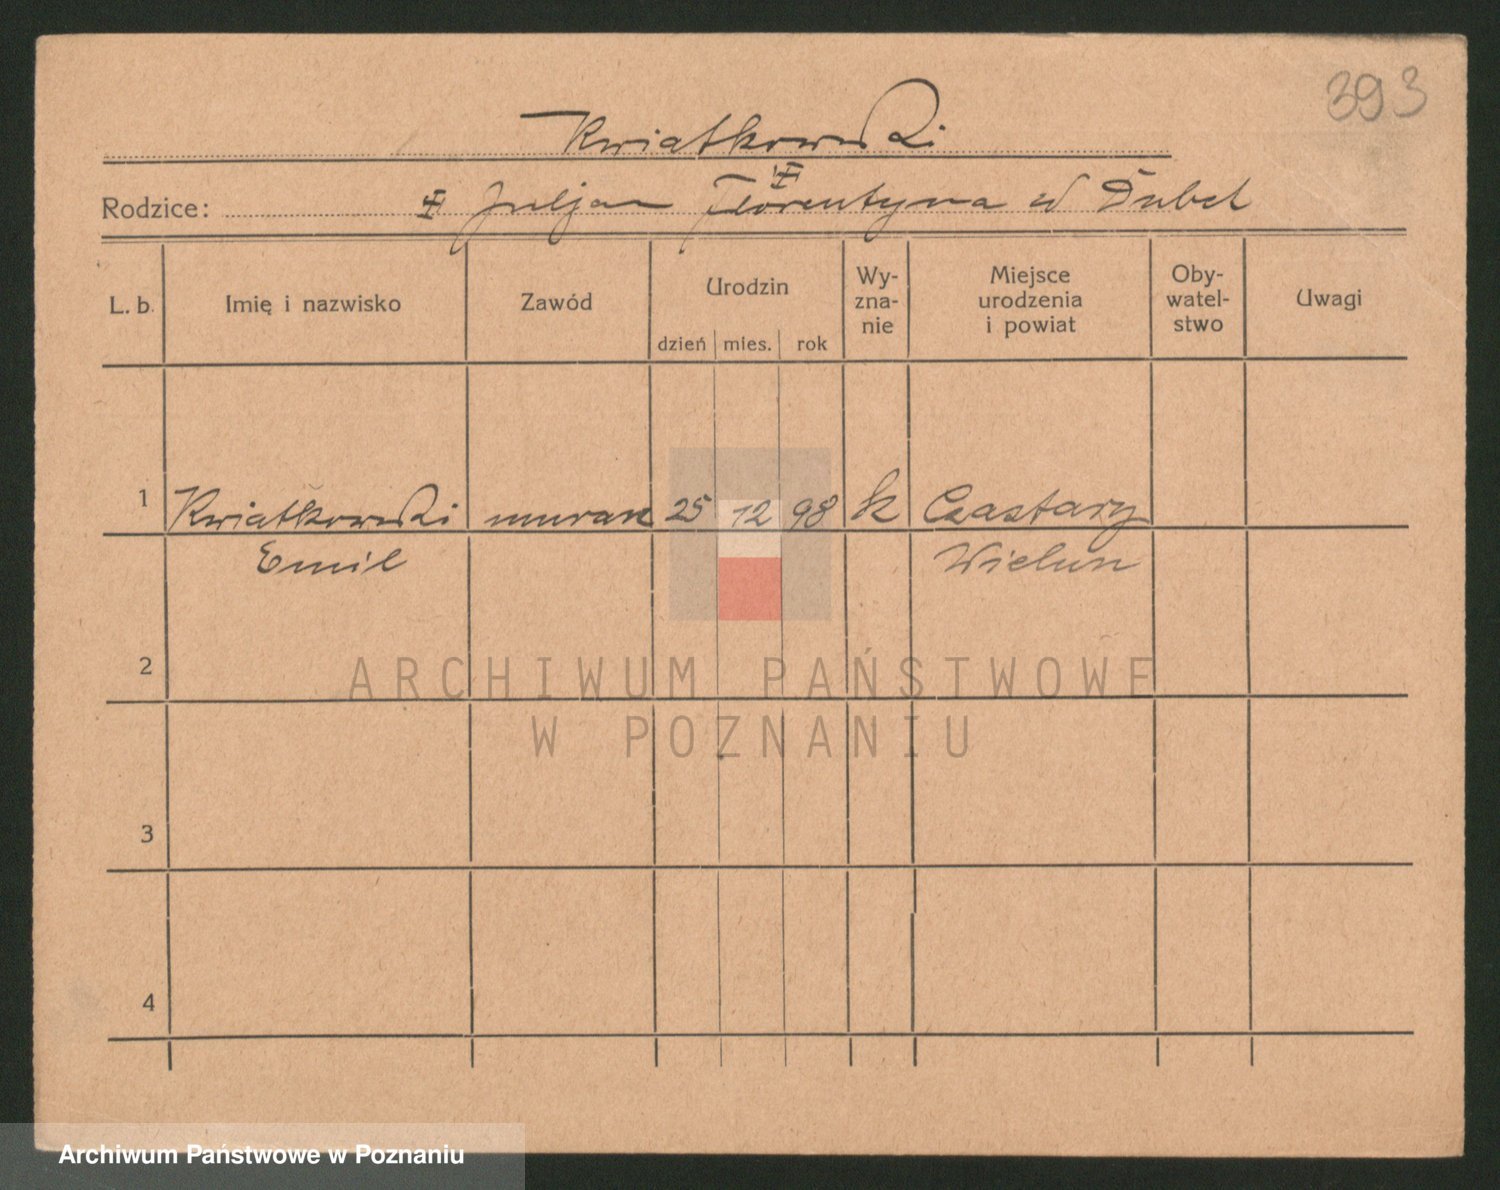 393
Kwiatkowski
Rodzice: ‡ Juljan ‡ Florentyna
L. b. Imię i nazwisko Zawód Urodzin dzień mies. rok Wy-zna-nie Miejsce urodzenia i powiat Oby-watel-stwo Uwagi
1 Kwiatkowski murarz 25 12 98 k Czastary
Emil Wielun
2
ARCHIWUM PAŃSTWOWE
W POZNANIU
3
4
Archiwum Państwowe w Poznaniu